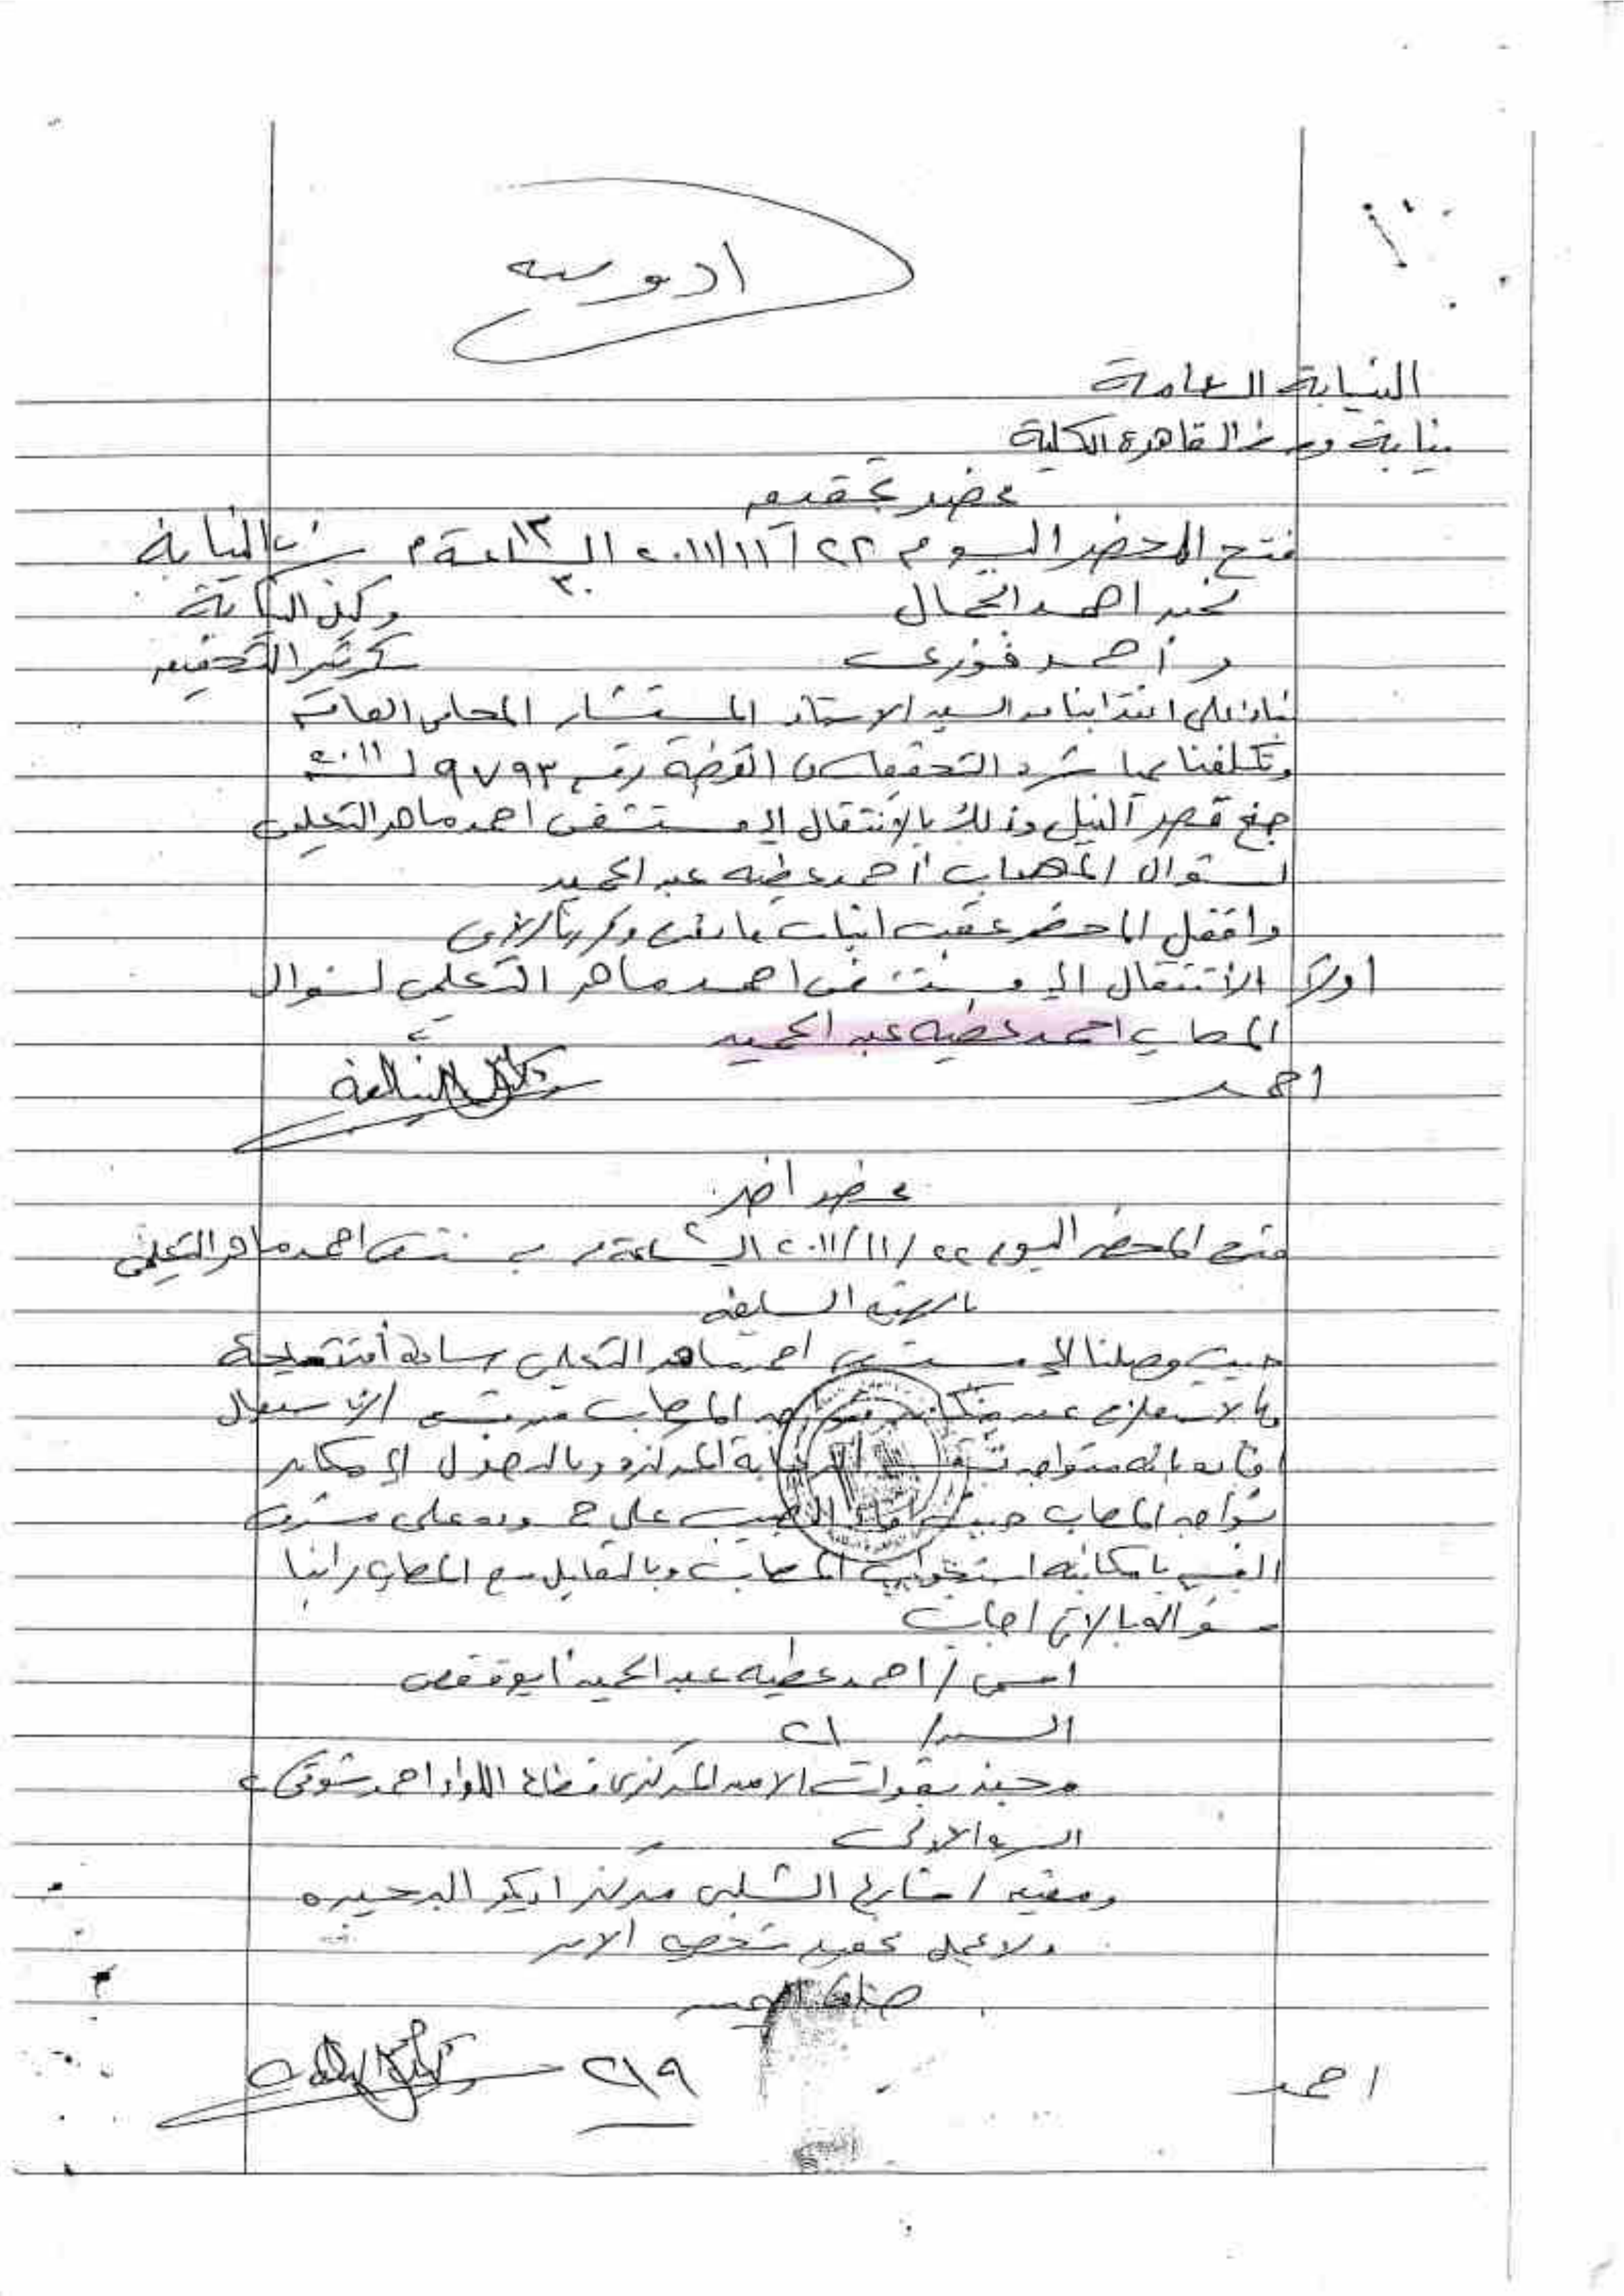 النيابة العامة
نيابة وسط القاهرة الكلية
محضر تحقيق
فتح المحضر اليوم ٢٢/١١/٢٠١١ الساعة ١٢ ٣٠ م بسراي النيابة
نحن احمد الجمال وكيل النيابة
و أحمد فوزى سكرتير التحقيق
بناء على انتدابنا من السيد الاستاذ المستشار المحامى العام
وتكلفنا بمباشرة التحقيقات فى القضية رقم ٩٧٩٣ لـ ٢٠١١
جنح قصر النيل وذلك بالإنتقال إلى مستشفى احمد ماهر التعليمى
لسؤال المصاب احمد عطيه عبد الحميد
واقفل المحضر عقب اثبات ما تقدم وقررنا الاتى
اولا الأنتقال الى مستشفى احمد ماهر التعليمى لسؤال
المصاب احمد عطيه عبد الحميد
احمد وكيل النيابة
محضر اخر
فتح المحضر اليوم ٢٢/١١/٢٠١١ الساعة م بمستشفى احمد ماهر التعليمى
بالهيئة السابقة
حيث وصلنا الى مستشفى احمد ماهر التعليمى
بالاستعلام عن مكان تواجد المصاب من قسم الاستقبال
افاد بانه متواجد بقسم الرعاية المركزه وبالدخول إلى مكان
تواجد المصاب حيث الطبيب على
بامكانية استجواب المصاب وبالتقابل مع المصاب راينا
سؤاله بالاتى اجاب
اسمى / احمد عطيه عبد الحميد
السن / ٢١
مجند بقوات الامن المركزى قطاع اللواء احمد شوقى
السريه الاولى
ومقيم / شارع الشلبى مركز ادكو البحيره
ولا يحمل تحقيق شخصيه الان
احمد ٢١٩ وكيل النيابة